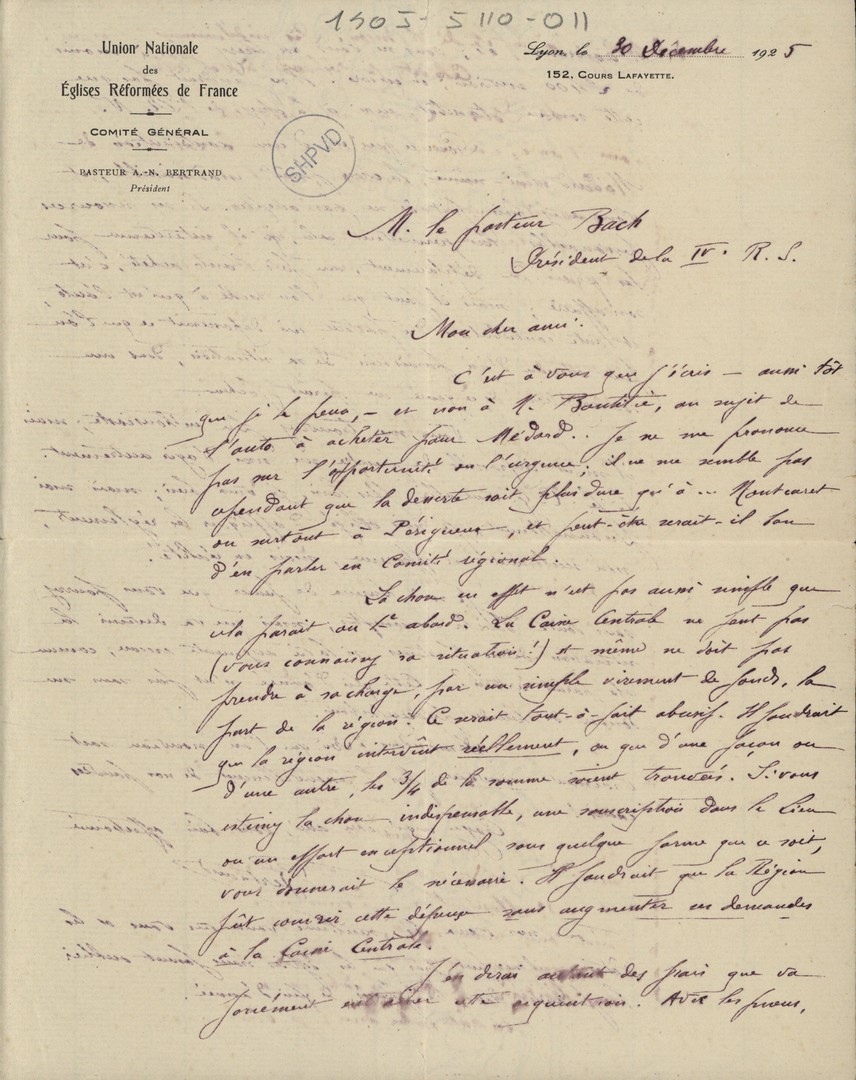 1905-5110-011
Union Nationale
des
Églises Réformées de France
COMITÉ GÉNÉRAL
PASTEUR A.-N. BERTRAND
Président
Lyon, le 30 Décembre 1925
152, COURS LAFAYETTE.
SHPVD
M. le pasteur Bach
Président de la IVe R. S.
Mon cher ami.
C'est à vous que j'écris – aussitôt
que je le peux, – et non à M. , au sujet de
l'auto à acheter pour Médard.. Je ne me prononce
pas sur l'opportunité ou l'urgence; il ne me semble pas
cependant que la desserte soit plus dure qu'à ... Montcaret
ou surtout à Périgueux, et peut-être serait-il bon
d'en parler en Comité régional.
La chose en effet n'est pas aussi simple que
cela paraît au 1er abord. La Caisse Centrale ne peut pas
(vous connaissez sa situation!) et même ne doit pas
prendre à sa charge, par un simple virement de fonds, la
part de la région. Ce serait tout-à-fait abusif. Il faudrait
que la région intervînt réellement, ou que d'une façon ou
d'une autre, les 3/4 de la somme soient trouvés. Si vous
estimez la chose indispensable, une souscription dans le Lien
ou un effort exceptionnel sous quelque forme que ce soit,
vous donnerait le nécessaire. Il faudrait que la Région
pût couvrir cette dépense sans augmenter ses demandes
à la Caisse Centrale.
J'en dirai autant des frais que va
forcément entraîner cette acquisition. Avec les pneus,